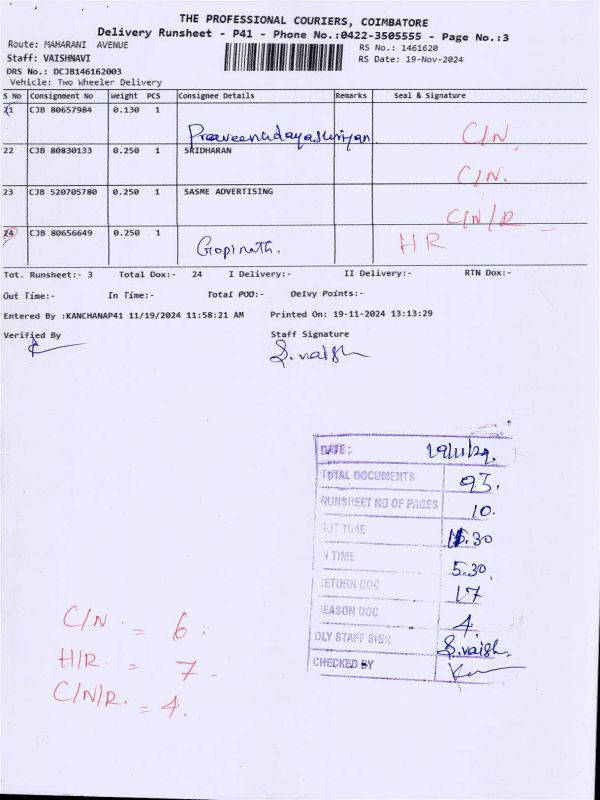 THE PROFESSIONAL COURIERS, COIMBATORE
Delivery Runsheet - P41 - Phone No.:0422-3505555 - Page No.:3
Route: MAHARANI AVENUE
RS No.: 1461620
Staff: VAISHNAVI
RS Date: 19-Nov-2024
DRS No.: DCJB146162003
Vehicle: Two Wheeler Delivery
S No Consignment No Weight PCS Consignee Details Remarks Seal & Signature
21 CJB 80657984 0.130 1 C/N
22 CJB 80830133 0.250 1 SRIDHARAN C/N.
23 CJB 520705780 0.250 1 SASME ADVERTISING C/N/R
24 CJB 80656649 0.250 1 Gopinath. HR
Tot. Runsheet:- 3 Total Dox:- 24 I Delivery:- II Delivery:- RTN Dox:-
Out Time:- In Time:- Total POD:- Delvy Points:-
Entered By :KANCHANAP41 11/19/2024 11:58:21 AM Printed On: 19-11-2024 13:13:29
Verified By Staff Signature
S.vaish
DATE: 19/11/24.
TOTAL DOCUMENTS 93.
RUNSHEET NO OF PAGES 10.
TIME 15.30
N TIME 5.30.
ETURN DOC 17
EASON DOC 4.
DLY STAFF SIGN S.vaish.
CHECKED BY
C/N. = 6.
H/R. = 7
C/N/R. = 4.